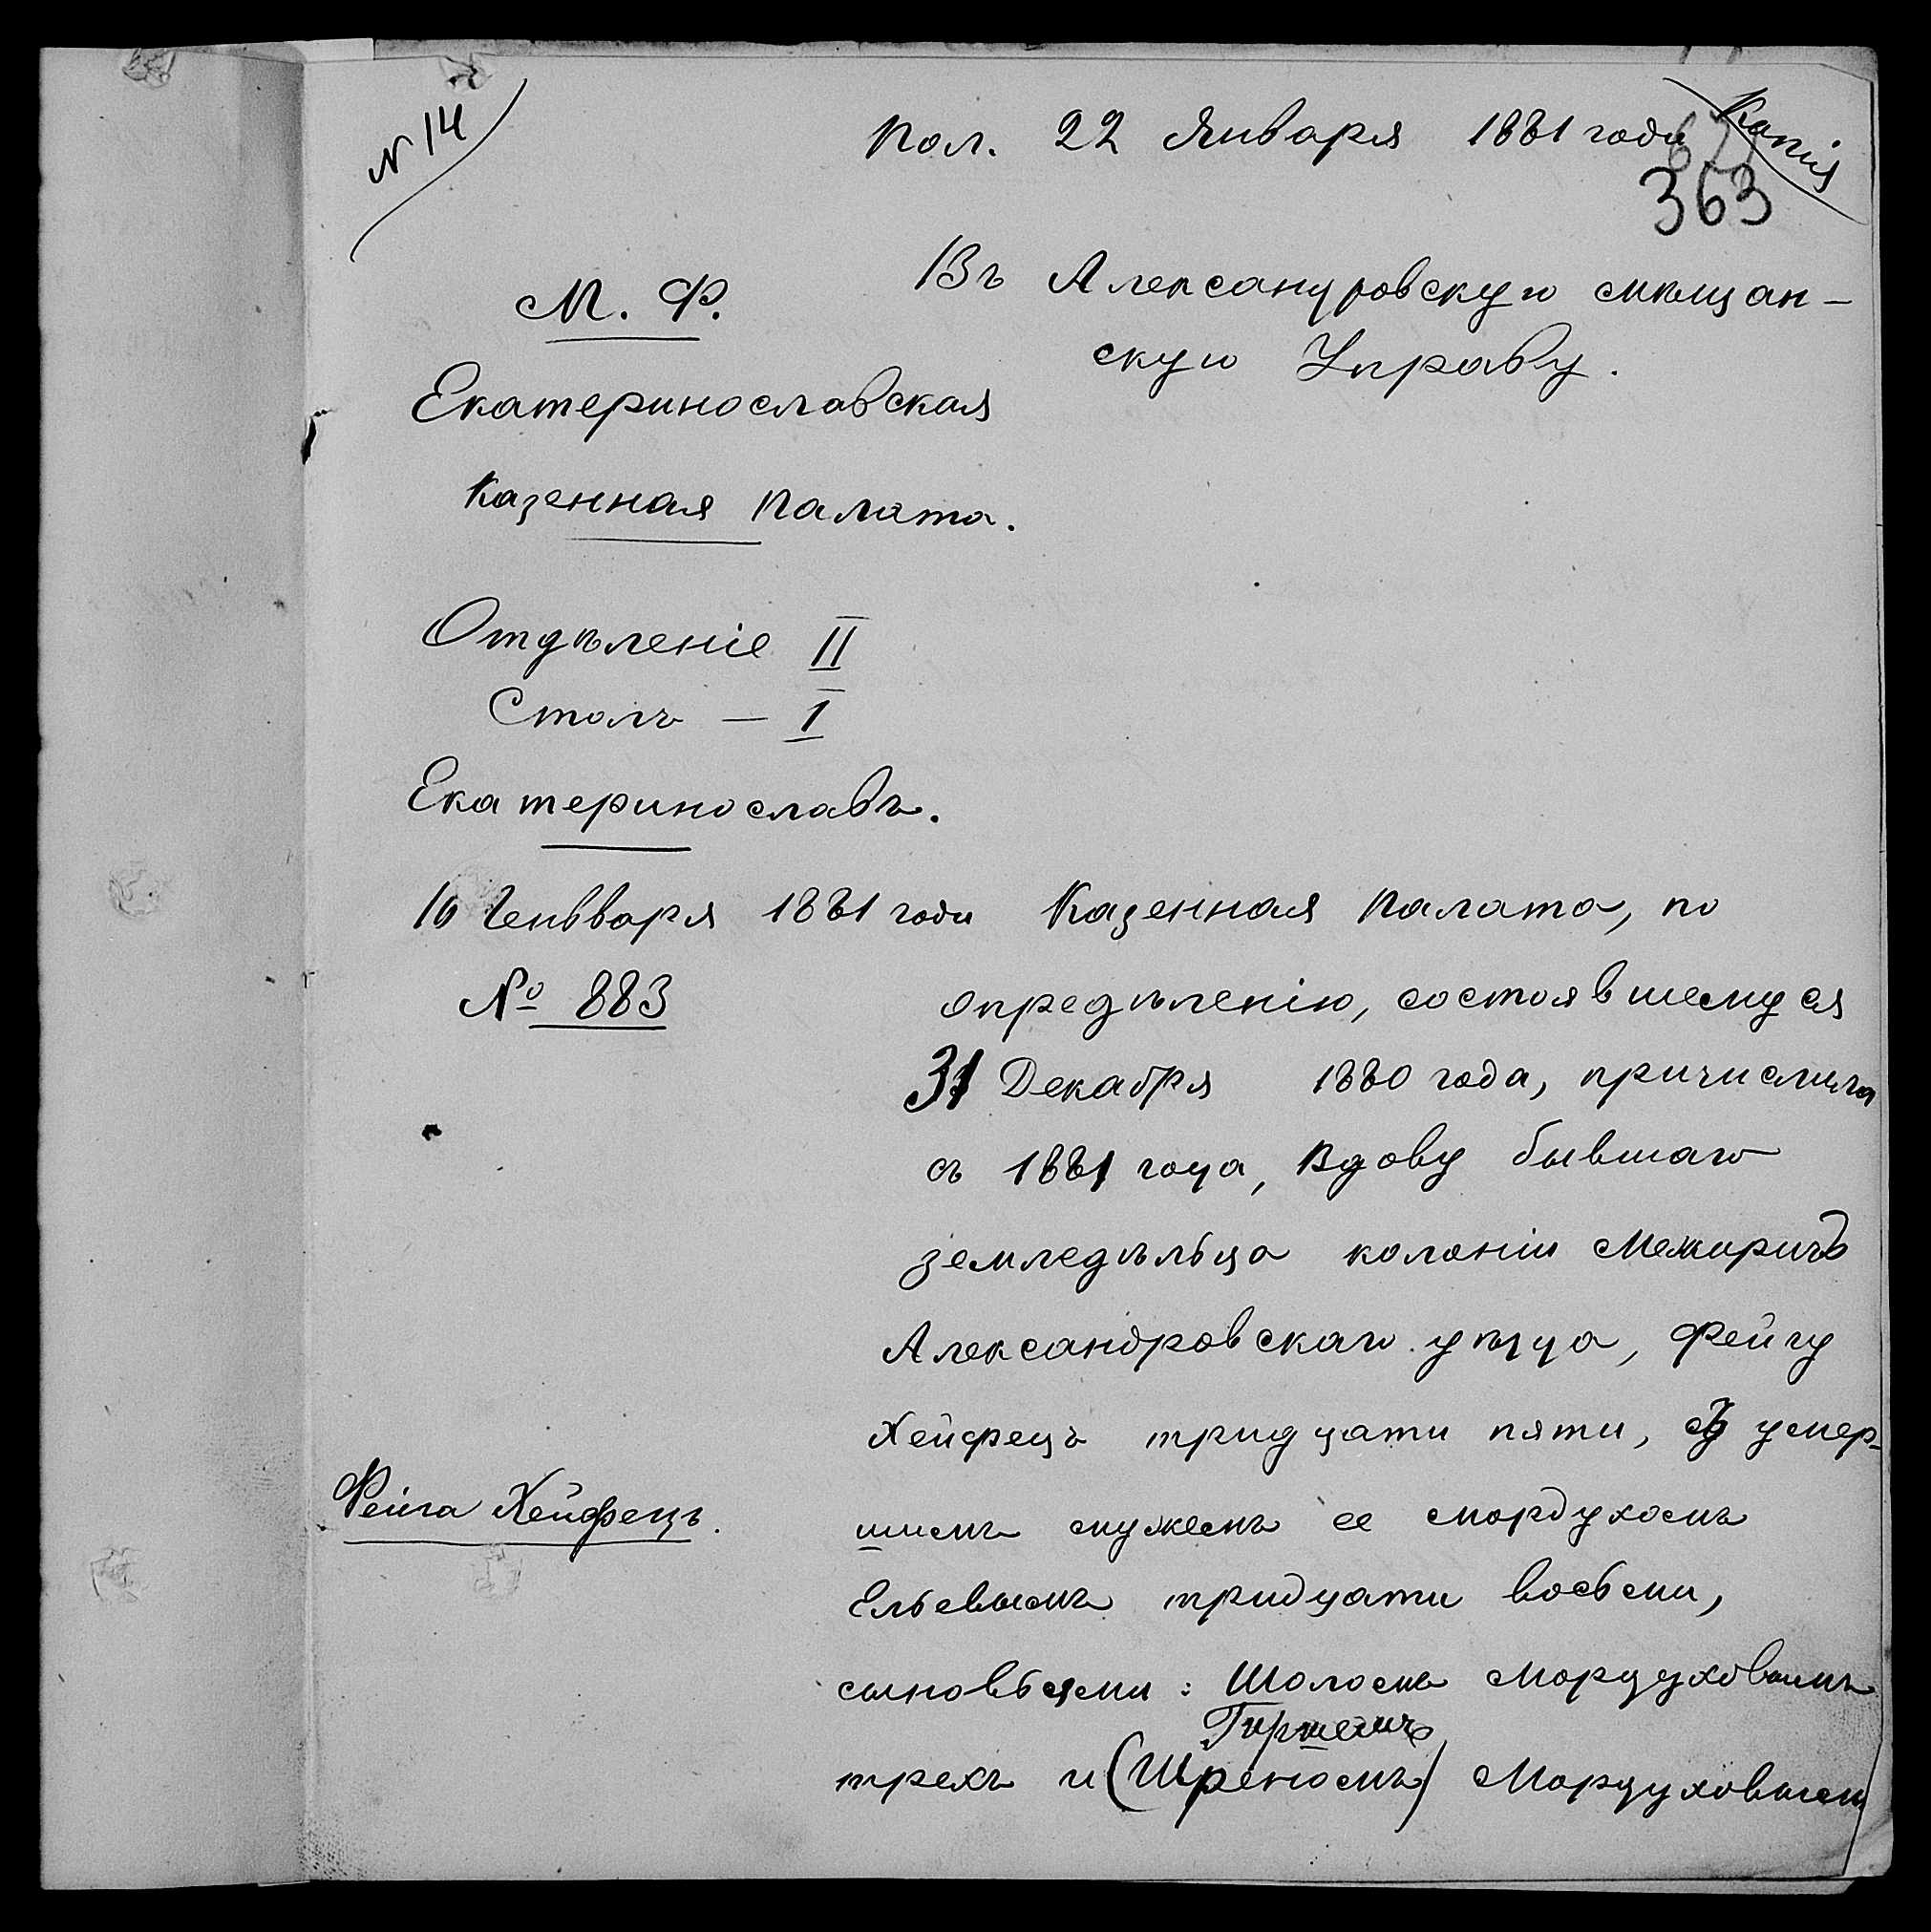 № 14
Пол. 22 Января 1881 года
Копія
363
Въ Александровскую мѣщан-
скую Управу.
М. Ф.
Екатеринославская
Казенная Палата.
Отдѣленіе II
Столъ — I
Екатеринославъ.
16 Генвваря 1881 года
№ 883
Казенная Палата, по
опредѣленію, состоявшемуся
31 Декабря 1880 года, причислила
съ 1881 года, вдову бывшаго
земледѣльца колоніи Межиричъ
Александровскаго уѣзда, Фейгу
Хейфецъ тридцати пяти, съ умер-
Фейга Хейфецъ.
шимъ мужемъ ее Мордухомъ
Ельевымъ тридцати восьми,
сыновьями: Шоломъ Мордуховымъ
Гиршемъ
трехъ и (Шреномъ) Мордуховымъ